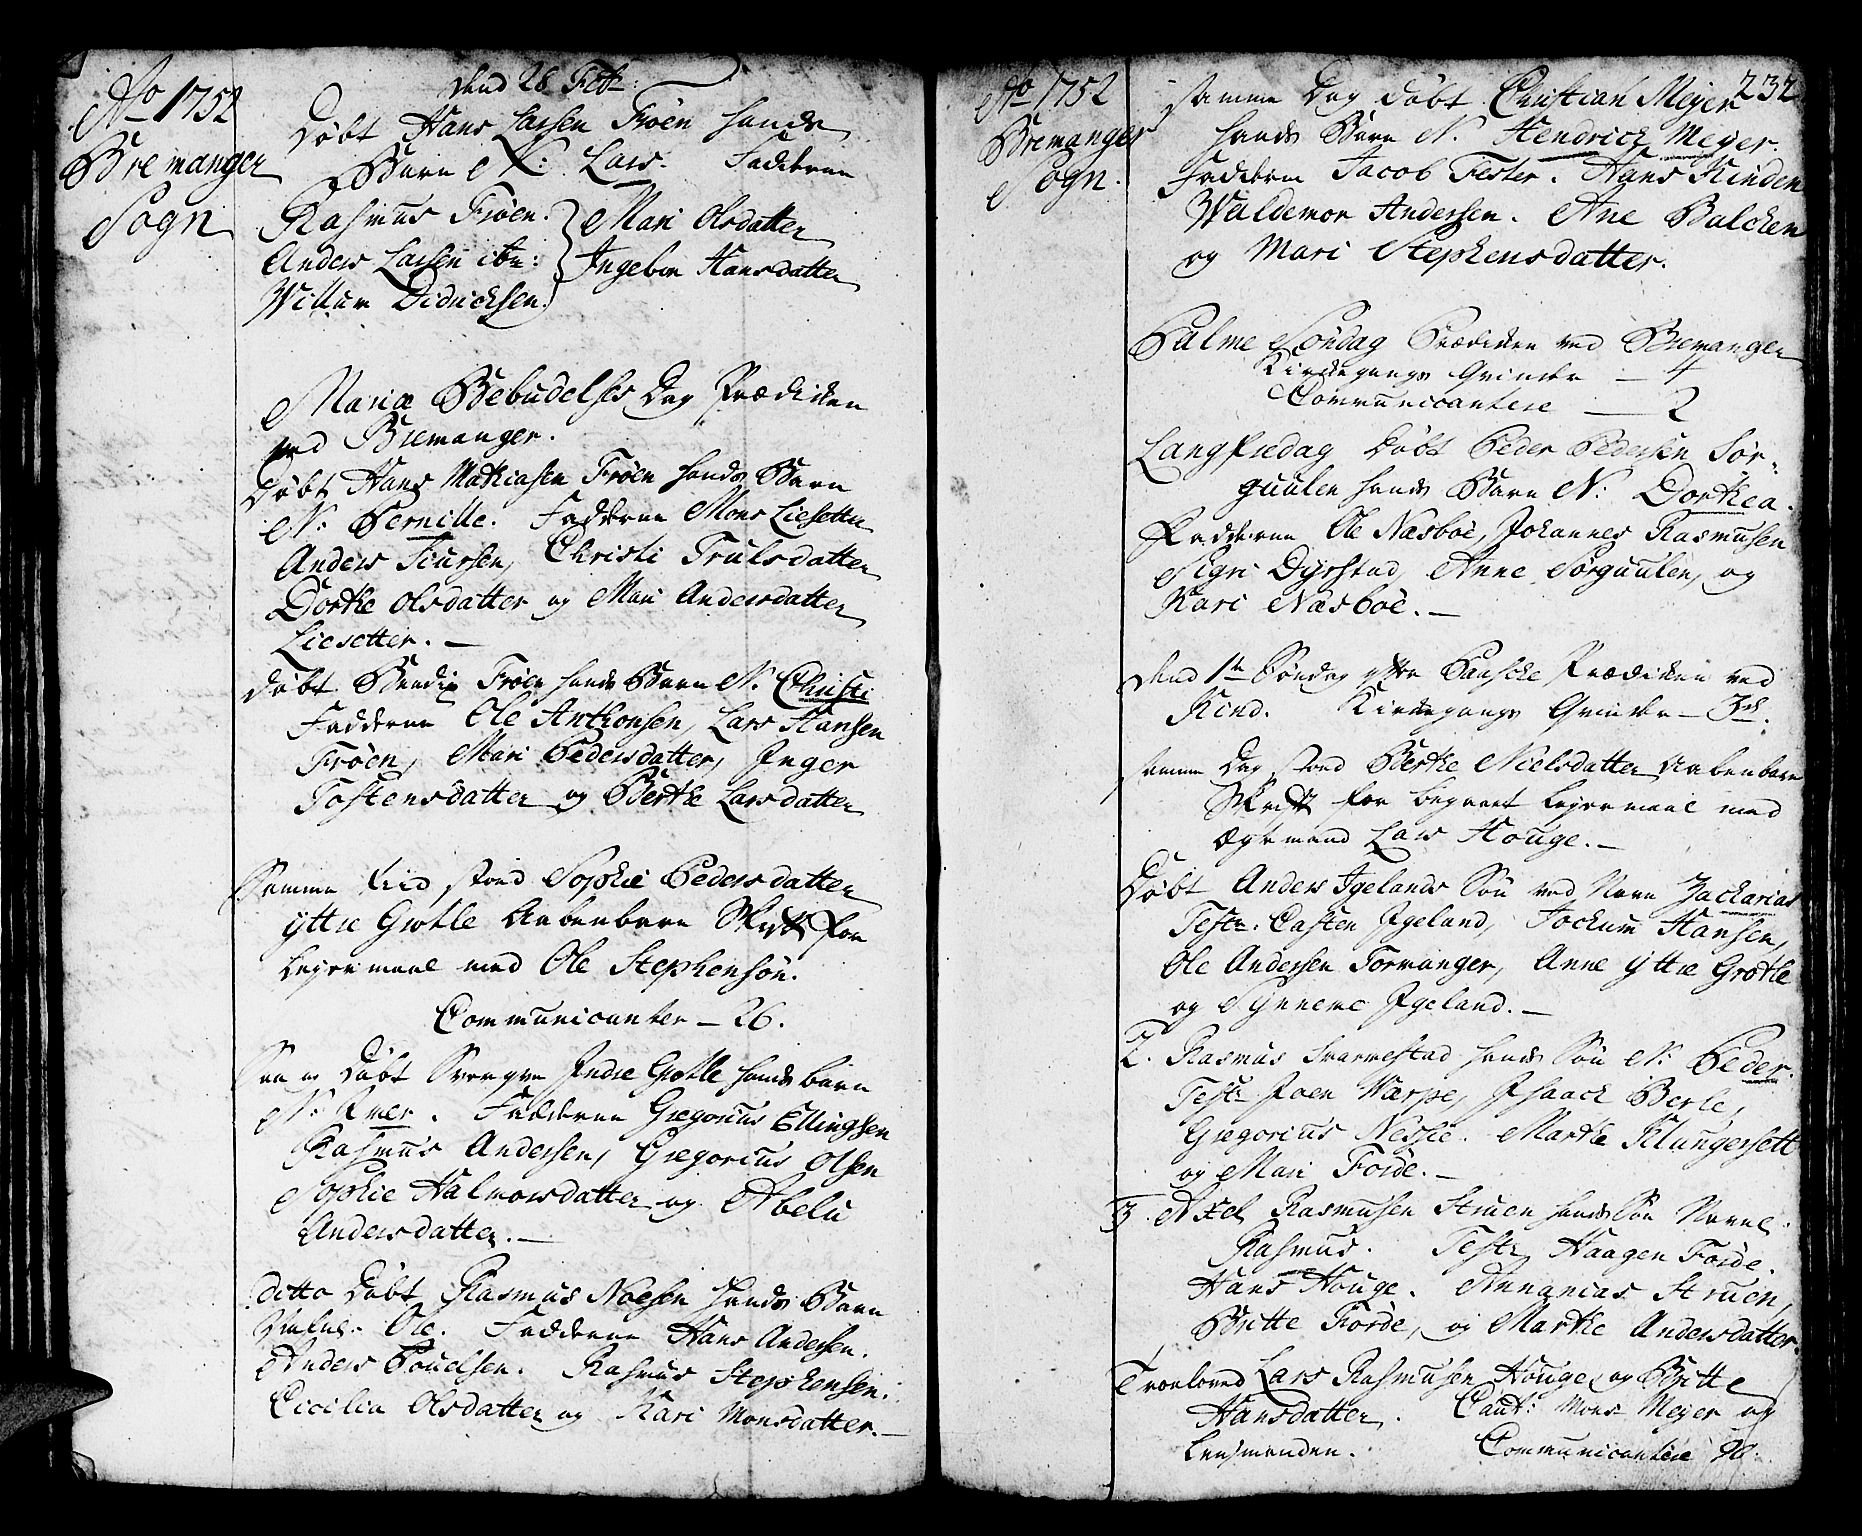 Ao 1752
Bremanger
Sogn
dend 28 Feb:
Døbt Hans Larsen Frøen hands
Barn N: Lars. Faddere
Rasmus Frøen. Mari Olsdatter
Anders Larsen ibn: Ingebor Hansdatter
Willum Didricksen.
Mariæ Bebudelses Dag Prædiken
ved Bremanger.
Døbt Hans Mathiasen Frøen hands Barn
N: Pernille. Fadderne Mons Liesetter
Anders Siursen, Christi Trulsdatter
Dorthe Olsdatter og Mari Andersdatter
Liesetter. —
Døbt Bendix Frøen hands Barn N. Christi
Fadderne Ole Anthonsen, Lars Hansen
Frøen, Mari Pedersdatter, Inger
Tostensdatter og Berthe Larsdatter
Samme tiid stoed Sophie Pedersdatter
yttre Grotle Aabenbare Skrifft for
Leyermaal med Ole Stephensøn.
Communicanter — 26.
Døbt Indre Grotle hands barn
N: Iver. Fadderne Gregorius Ellingsen
Rasmus Andersen, Gregorius Olsen
Sophie Halvorsdatter og Abelu
Andersdatter. —
ditto Døbt Rasmus Noesen hands Barn
Ole. Fadderne Hans Andersen.
Anders Pouelsen. Rasmus Stephensen.
Cicilia Olsdatter og Kari Monsdatter. —
Ao 1752
Bremanger
Sogn.
232
samme Dag døbt Christian Meyer
hands Barn N. Hendrick Meyer.
Faddere Jacob Fester. Hans Kinden
Waldemor Andersen. Ane Balchen
og Mari Stephensdatter.
Palme Søndag Prædiken ved Bremanger
Kirkegangs Qvinder — 4
Communicantere — 2
Langfredag Døbt Peder Pedersen Sør-
guulen hands Barn N: Dorthea.
Fadderne Ole Næsboe, Johannes Rasmusen
Sigri Dyrstad, Anne Sørguulen, og
Kari Næsboe. —
dend 1te Søndag effter Paaske Prædiken ved
Kind. Kirkegangs Qvinder — 3de.
samme Dag stoed Berthe Nielsdatter Aabenbare
Skrifft for begaaet Leyermaal med
Ægtemand Lars Houge. —
Døbt Anders Igelands Søn ved Navn Zacharias
Test: Casten Igeland, Jochum Hansen,
Ole Andersen Torvanger, Anne yttre Grotle
og Synneve Igeland. —
2. Rasmus Svarvestad hands Søn N: Peder.
Test: Joen Varpe, Isaach Berle,
Gregorius Nessie. Marthe Klungersett
og Mari Førde. —
3. Axel Rasmusen Struen hands Søn Navnl.
Rasmus. Test: Haagen Førde.
Hans Houge. Annanias Struen,
Britte Førde, og Marthe Andersdatter.
Troeloved Lars Rasmusen Houge og Britte
Hansdatter. Caut: Mons Meyer og
Lensmanden. Communicantere